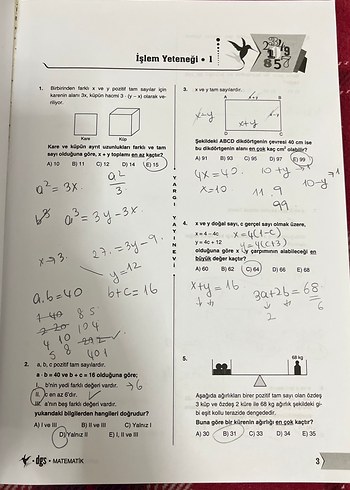 İşlem Yeteneği • 1
1. Birbirinden farklı x ve y pozitif tam sayılar için
karenin alanı 3x, küpün hacmi 3 · (y – x) olarak ve-
riliyor.
Kare
Küp
Kare ve küpün ayrıt uzunlukları farklı ve tam
sayı olduğuna göre, x + y toplamı en az kaçtır?
A) 10 B) 11 C) 12 D) 14 E) 15
a² = 3x
a²
3
a³ = 3y - 3x
x → 3
27 = 3y - 9
y = 12
a.b = 40
b + c = 16
1 40
8 5
2 20
10 4
4 10
5 8
40 1
2. a, b, c pozitif tam sayılardır.
a · b = 40 ve b + c = 16 olduğuna göre;
I. b'nin yedi farklı değeri vardır. → 6
II. c en az 6'dır.
III. a'nın beş farklı değeri vardır.
yukarıdaki bilgilerden hangileri doğrudur?
A) I ve III B) II ve III C) Yalnız I
D) Yalnız II E) I, II ve III
YARGI YAYINEVİ
3. x ve y tam sayılardır.
A
x–y
B
x-y
x+y
D
C
Şekildeki ABCD dikdörtgenin çevresi 40 cm ise
bu dikdörtgenin alanı en çok kaç cm² olabilir?
A) 91 B) 93 C) 95 D) 97 E) 99
4x = 40
x = 10
10 + y
10 - y
11 . 9
99
4. x ve y doğal sayı, c gerçel sayı olmak üzere,
x = 4 – 4c
x = 4(1-c)
y = 4c + 12
y = 4(c+3)
olduğuna göre x · y çarpımının alabileceği en
büyük değer kaçtır?
A) 60 B) 62 C) 64 D) 66 E) 68
x + y = 16
3a + 2b = 68
6
2
5.
68 kg
Aşağıda ağırlıkları birer pozitif tam sayı olan özdeş
3 küp ve özdeş 2 küre ile 68 kg ağırlık şekildeki gi-
bi eşit kollu terazide dengededir.
Buna göre bir kürenin ağırlığı en çok kaçtır?
A) 30 B) 31 C) 33 D) 34 E) 35
• dgs • MATEMATİK
3